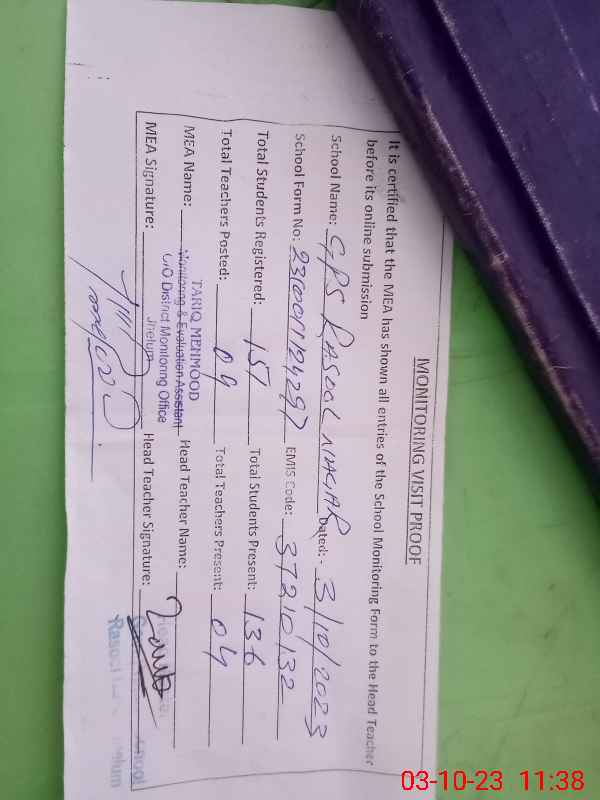 MONITORING VISIT PROOF
It is certified that the MEA has shown all entries of the School Monitoring Form to the Head Teacher
before its online submission
School Name: GPS RASOOL NAGAR Dated:- 3/10/2023
School Form No: EMIS Code: 37210132
Total Students Registered: 151 Total Students Present: 136
Total Teachers Posted: 04 Total Teachers Present: 04
MEA Name: TARIQ MEHMOOD Head Teacher Name:
Monitoring & Evaluation Assistant
O/O District Monitoring Office
Jhelum
MEA Signature: Head Teacher Signature:
Rasool
03-10-23 11:38